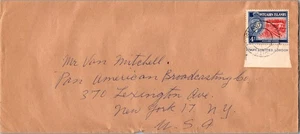 PITCAIRN ISLANDS
Mr. Van Mitchell.
Pan American Broadcasting Co
371 Lexington Ave.
New York 17. N.Y.
U.S.A